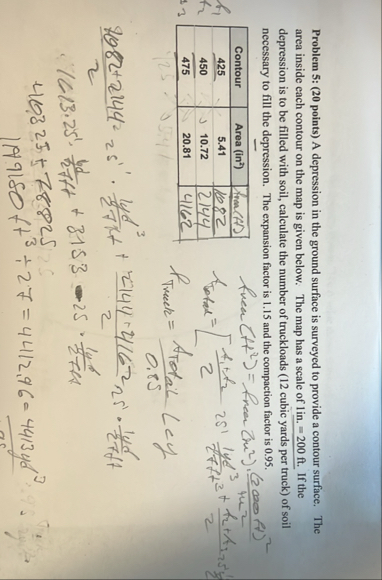 Problem 5: (20 points) A depression in the ground surface is surveyed to provide a contour surface. The
area inside each contour on the map is given below. The map has a scale of 1in. = 200 ft. If the
depression is to be filled with soil, calculate the number of truckloads (12 cubic yards per truck) of soil
necessary to fill the depression. The expansion factor is 1.15 and the compaction factor is 0.95.
Contour Area (in²) Area (ft)
425 5.41 1082
450 10.72 2144
475 20.81 4162
Area (ft²) = Area (in²) ·
Atotal =
Truck = Atotal
0.85
1082+2144
2
25' ·
2144+4162
2
25' ·
1613·25' · + 3153 · 25 ·
40325 + 78825
119150 ft³ ÷ 27 = 4412.96 = 4413 yd³